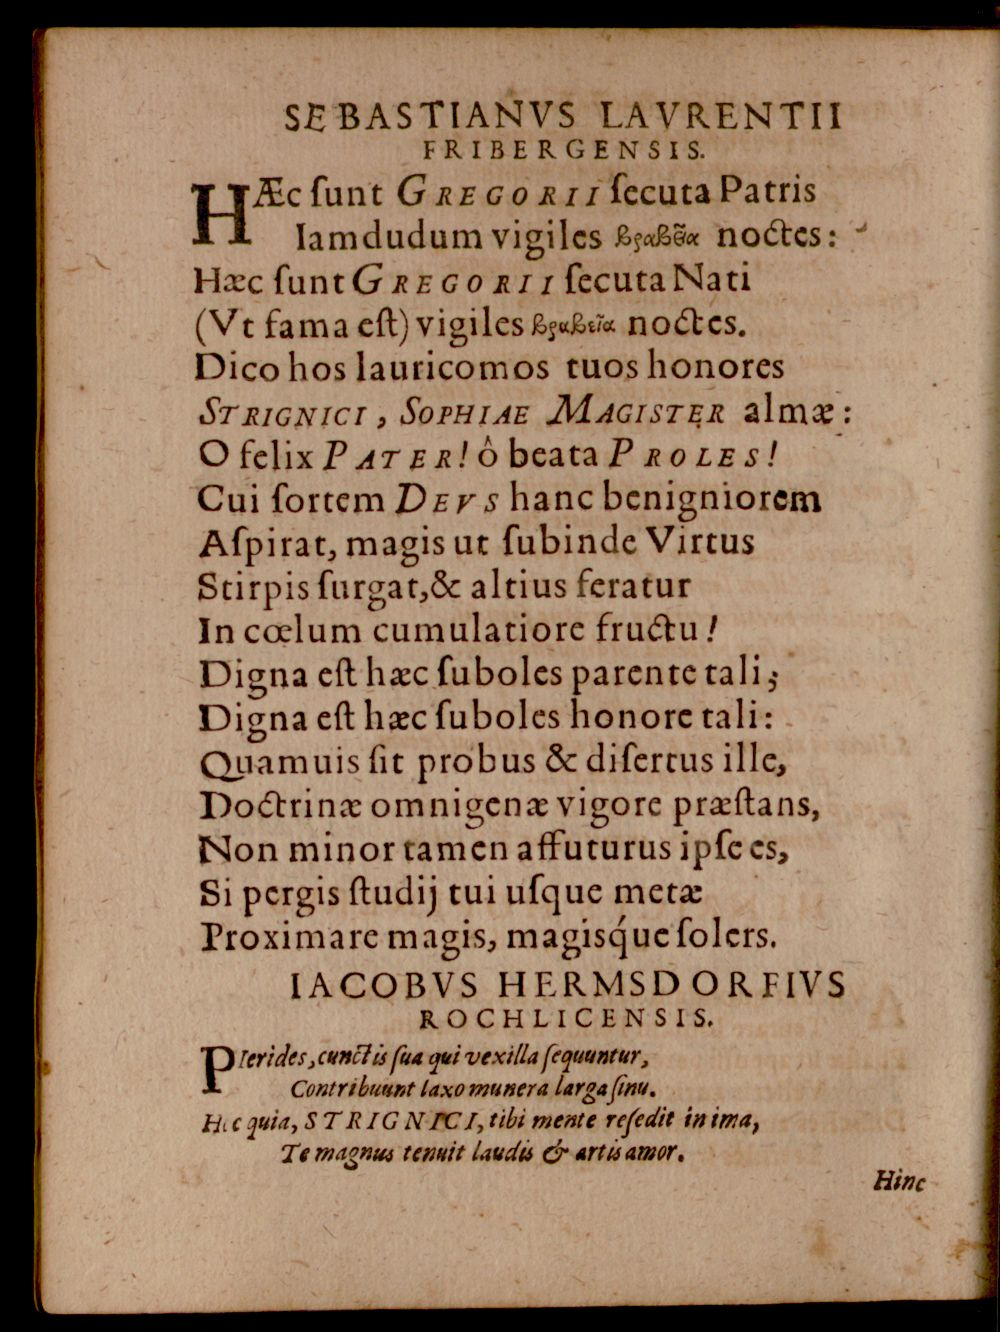 SEBASTIANVS LAVRENTII
FRIBERGENSIS.
HÆc ſunt GREGORII ſecuta Patris
Iamdudum vigiles βραβεῖα noctes:
Hæc ſunt GREGORII ſecuta Nati
(Vt fama eſt) vigiles βραβεῖα noctes.
Dico hos lauricomos tuos honores
STRIGNICI, SOPHIAE MAGISTER almæ:
O felix PATER! ô beata PROLES!
Cui ſortem DEVS hanc benigniorem
Aſpirat, magis ut ſubinde Virtus
Stirpis ſurgat, & altius feratur
In cœlum cumulatiore fructu!
Digna eſt hæc ſuboles parente tali;
Digna eſt hæc ſuboles honore tali:
Quamuis ſit probus & diſertus ille,
Doctrinæ omnigenæ vigore præſtans,
Non minor tamen affuturus ipſe es,
Si pergis ſtudij tui uſque metæ
Proximare magis, magisq́ue ſolers.
IACOBVS HERMSDORFIVS
ROCHLICENSIS.
PIerides, cunctis ſua qui vexilla ſequuntur,
Contribuunt laxo munera larga ſinu.
Hęc quia, STRIGNICI, tibi mente reſedit in ima,
Te magnus tenuit laudis & artis amor.
Hinc